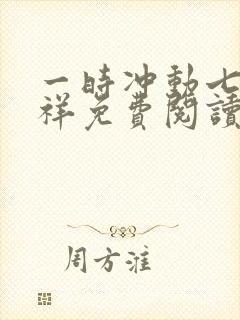 一時冲動七
祥免費閱讀
周方淮